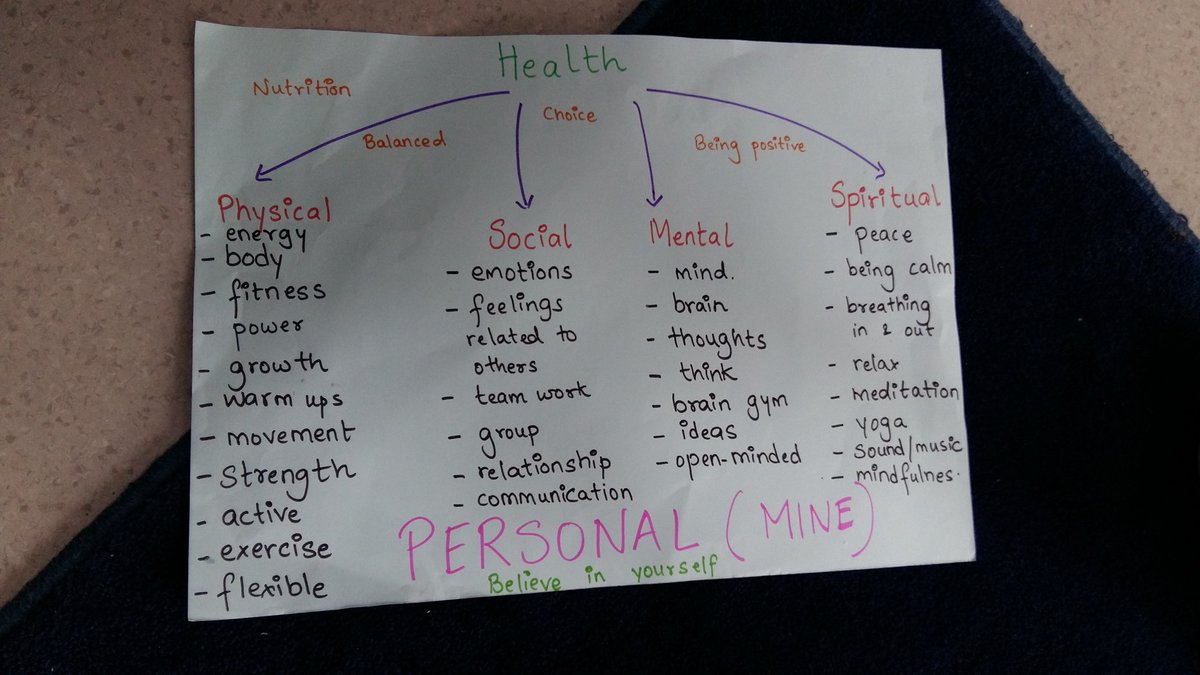 Health
Nutrition
Choice
Balanced
Being positive
Physical
- energy
- body
- fitness
- power
- growth
- warm ups
- movement
- strength
- active
- exercise
- flexible
Social
- emotions
- feelings
related to
others
- team work
- group
- relationship
- communication
Mental
- mind.
- brain
- thoughts
- think
- brain gym
- ideas
- open-minded
Spiritual
- peace
- being calm
- breathing
in & out
- relax
- meditation
- yoga
- sound/music
- mindfulnes.
PERSONAL (MINE)
Believe in yourself